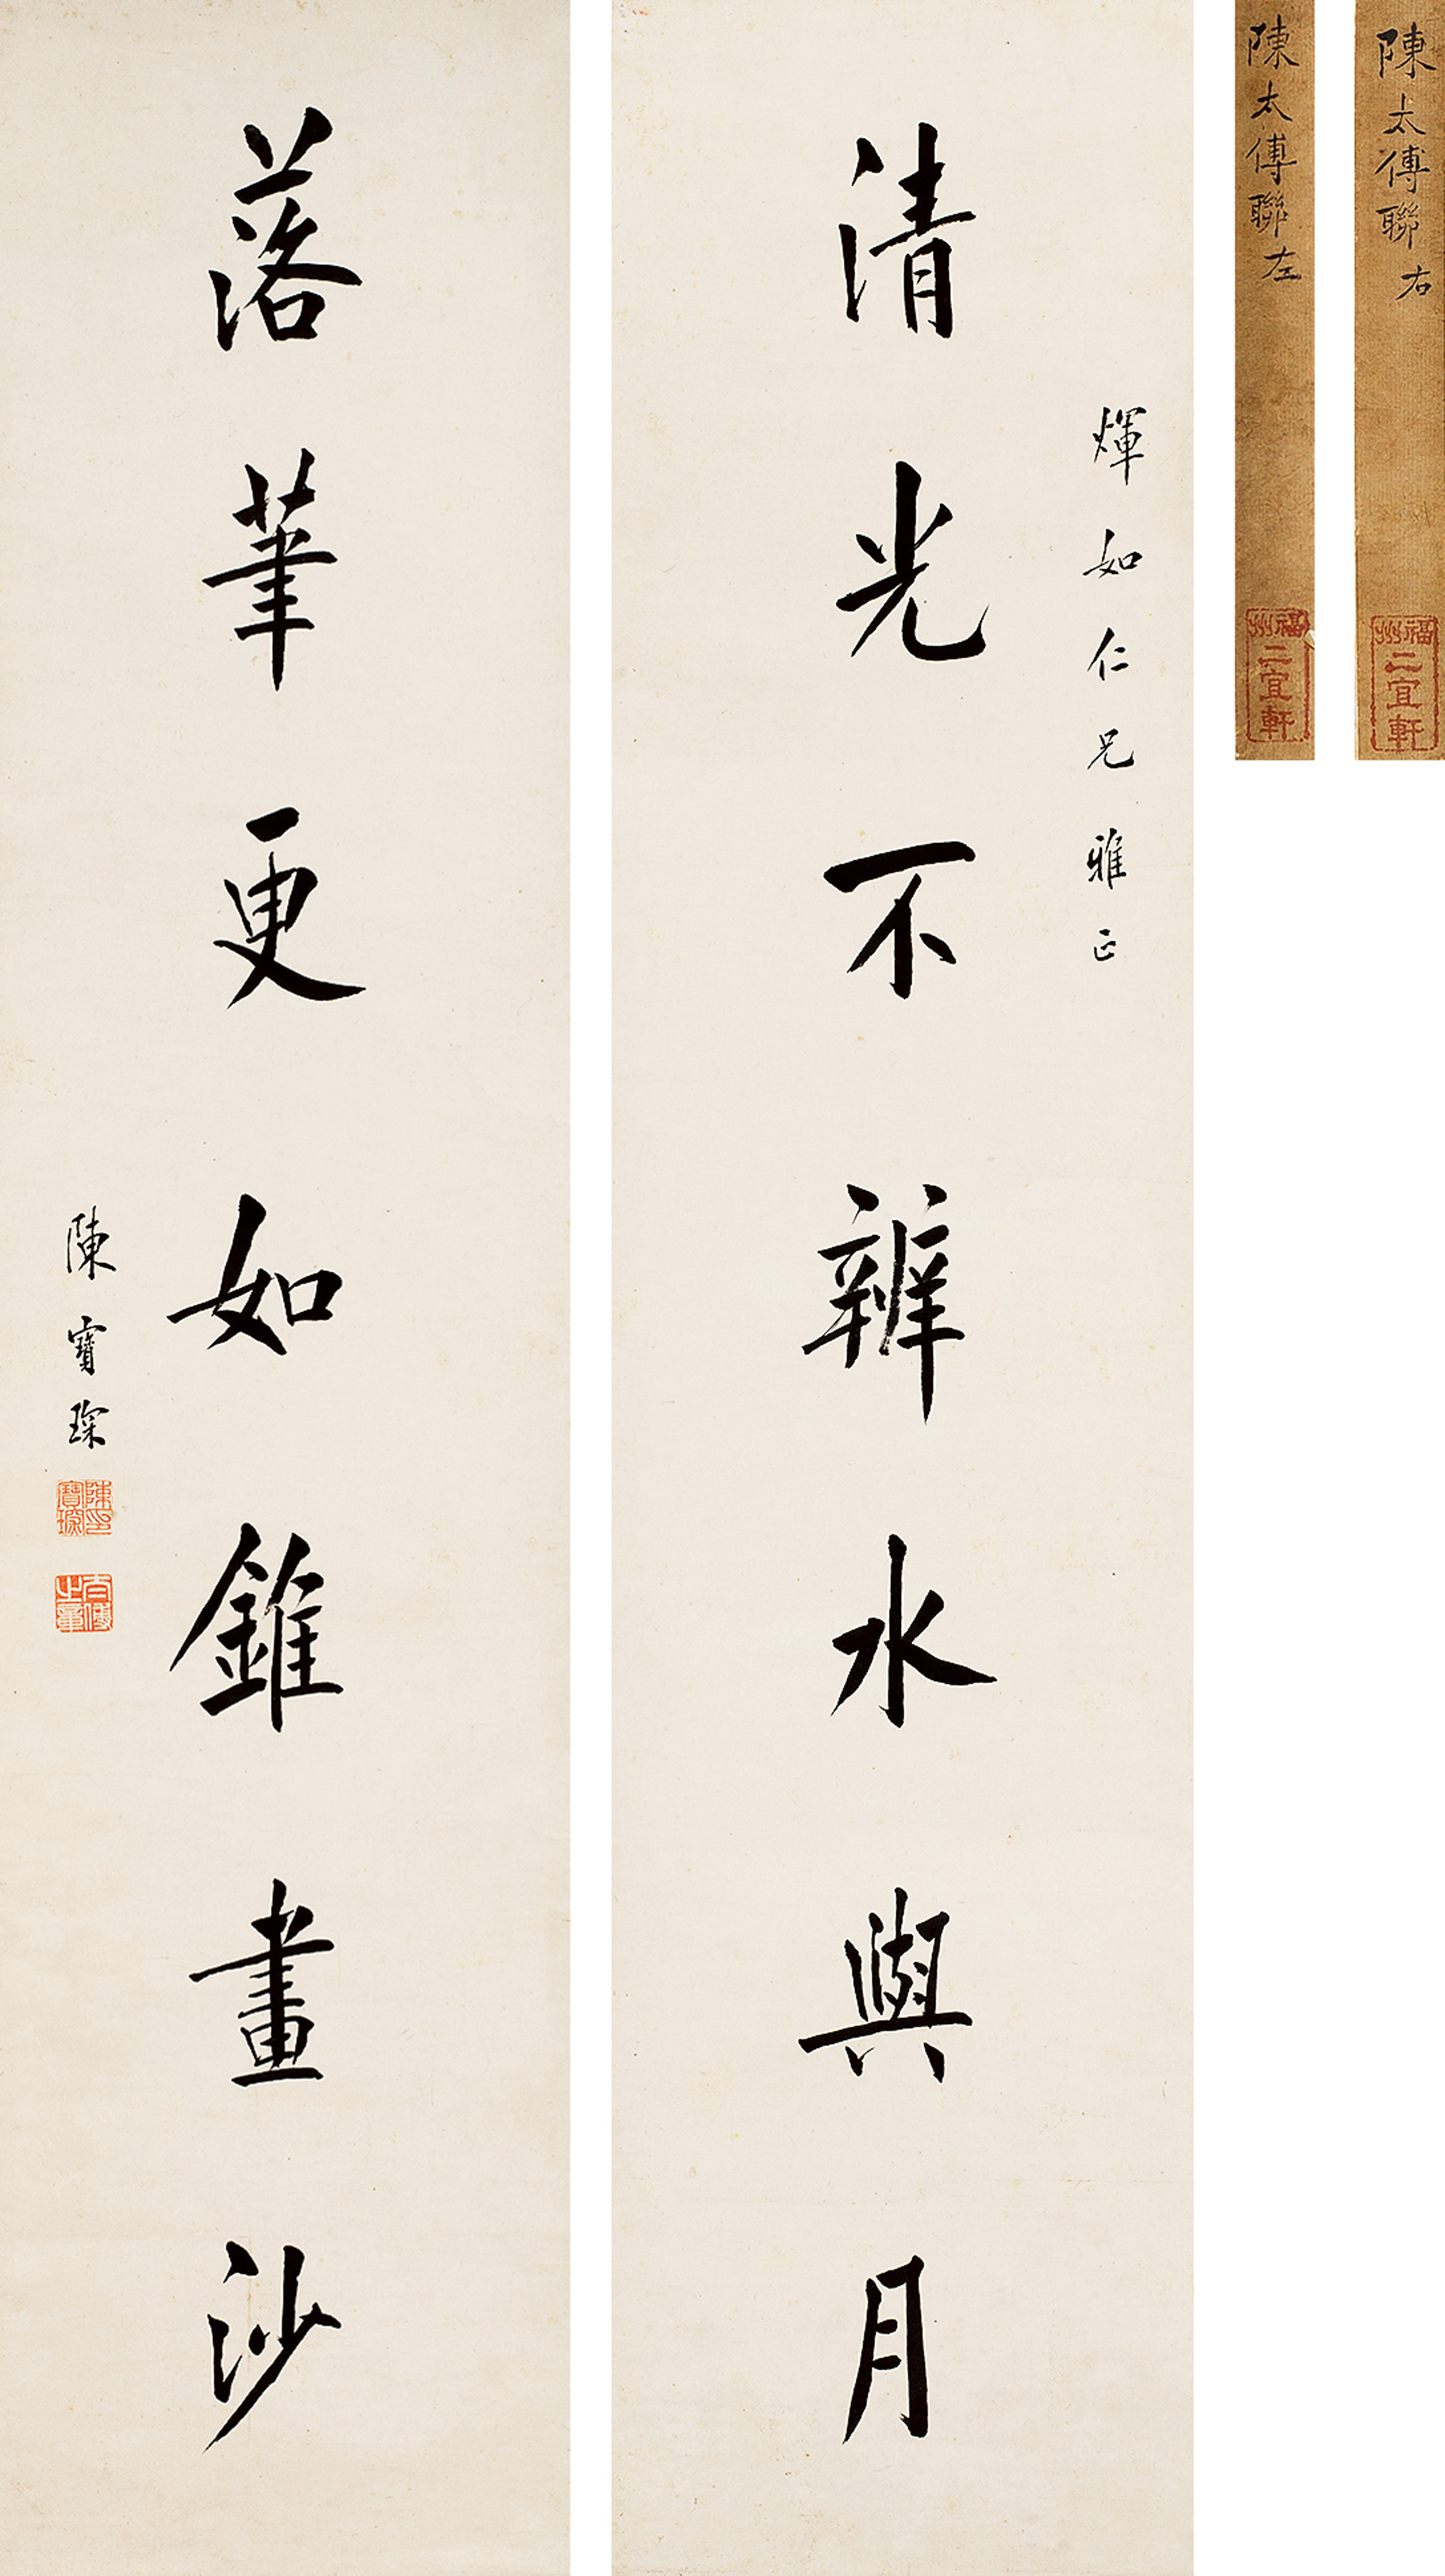 陳太傅聯右
福州
二宜軒
陳太傅聯左
福州
二宜軒
煇如仁兄雅正
清光不辨水與月
落筆更如錐畫沙
陳寶琛
陳寶琛印
太傅之章